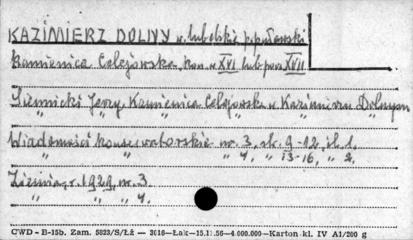 KAZIMIERZ DOLNY w. lubelskie p. puławski
Kamienica Celejowska, kon. w XVI lub pocz XVII
Siennicki Jerzy Kamienica Celejowska w Kazimierzu Dolnym
Wiadomości konserwatorskie nr. 3, str. 9-12, il. 1.
" " " 4, " 13-16, " 2.
1929, nr. 3.
" " " 4.
CWD - B-15b. Zam. 5823/S/Łż — 3016—Łak—15.11.56—4.000.000—Karton kl. IV A1/200 g